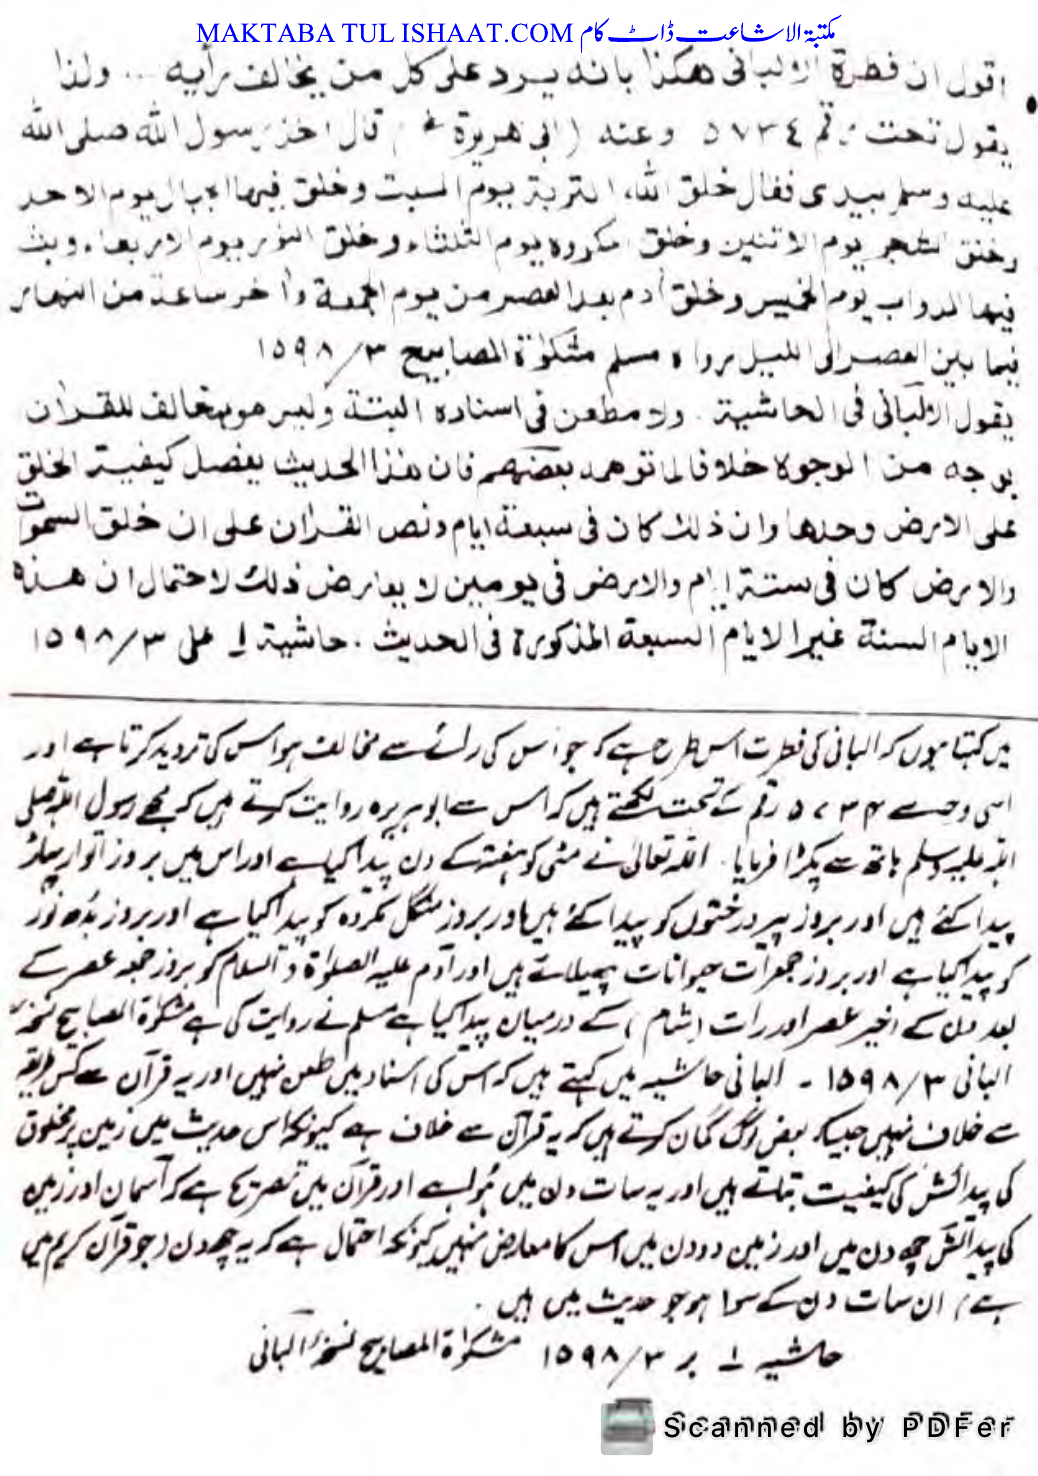 MAKTABA TUL ISHAAT.COM مكتبة الاشاعت ڈاٹ کام
اقول ان فطرة الالبانی هكذا بانه يرد علی كل من يخالف برأيه ... ولذا
يقول تحت رقم ٥٧٣٤ وعنه (ابی هريرة) قال اخذ رسول الله صلی الله
عليه وسلم بيدی فقال خلق الله التربة يوم السبت وخلق فيها الجبال يوم الاحد
وخلق الشجر يوم الاثنين وخلق المكروه يوم الثلثاء وخلق النور يوم الاربعاء وبث
فيها الدواب يوم الخميس وخلق آدم بعد العصر من يوم الجمعة وآخر ساعة من النهار
فيما بين العصر الی الليل رواه مسلم مشكوٰة المصابيح ٣/١٥٩٨
يقول الالبانی فی الحاشية . ولا مطعن فی اسناده البتة وليس هو بمخالف للقرآن
بوجه من الوجوه خلافا لما توهمه بعضهم فان هذا الحديث يفصل كيفية الخلق
علی الارض وحدها وان ذلك كان فی سبعة ايام ونص القرآن علی ان خلق السموٰت
والارض كان فی ستة ايام والارض فی يومين لا يعارض ذلك لاحتمال ان هذه
الايام الستة غير الايام السبعة المذكورة فی الحديث . حاشية ١ علی ٣/١٥٩٨
میں کہتا ہوں کہ البانی کی فطرت اس طرح ہے کہ جو اس کی رائے سے مخالف ہو اس کی تردید کرتا ہے اور
اسی وجہ سے ٥٧٣٤ رقم کے تحت لکھتے ہیں کہ اس سے ابو ہریرہ روایت کرتے ہیں کہ مجھے رسول اللہ صلی
اللہ علیہ وسلم ہاتھ سے پکڑا فرمایا . اللہ تعالیٰ نے مٹی کو ہفتہ کے دن پیدا کیا ہے اور اس میں بروز اتوار پہاڑ
پیدا کئے ہیں اور بروز پیر درختوں کو پیدا کئے ہیں اور بروز منگل مکروہ کو پیدا کیا ہے اور بروز بدھ نور
کو پیدا کیا ہے اور بروز جمعرات حیوانات پھیلائے ہیں اور آدم علیہ الصلوٰۃ والسلام کو بروز جمعہ عصر کے
بعد دن کے اخیر عصر اور رات (شام) کے درمیان پیدا کیا ہے مسلم نے روایت کی ہے مشکوٰۃ المصابیح نسخہ
البانی ٣/١٥٩٨ ـ البانی حاشیہ میں کہتے ہیں کہ اس کی اسناد میں طعن نہیں اور یہ قرآن سے کسی طریقہ
سے خلاف نہیں جیسا کہ بعض لوگ گمان کرتے ہیں کہ یہ قرآن سے خلاف ہے کیونکہ اس حدیث میں زمین پر مخلوق
کی پیدائش کی کیفیت بتاتے ہیں اور یہ سات دن میں ہوا ہے اور قرآن میں تصریح ہے کہ آسمان اور زمین
کی پیدائش چھ دن میں اور زمین دو دن میں اس کا معارض نہیں کیونکہ احتمال ہے کہ یہ چھ دن (جو قرآن کریم میں
ہے) ان سات دن کے سوا ہو جو حدیث میں ہیں .
حاشیہ ١ بر ٣/١٥٩٨ مشکوٰۃ المصابیح نسخہ البانی
Scanned by PDFer